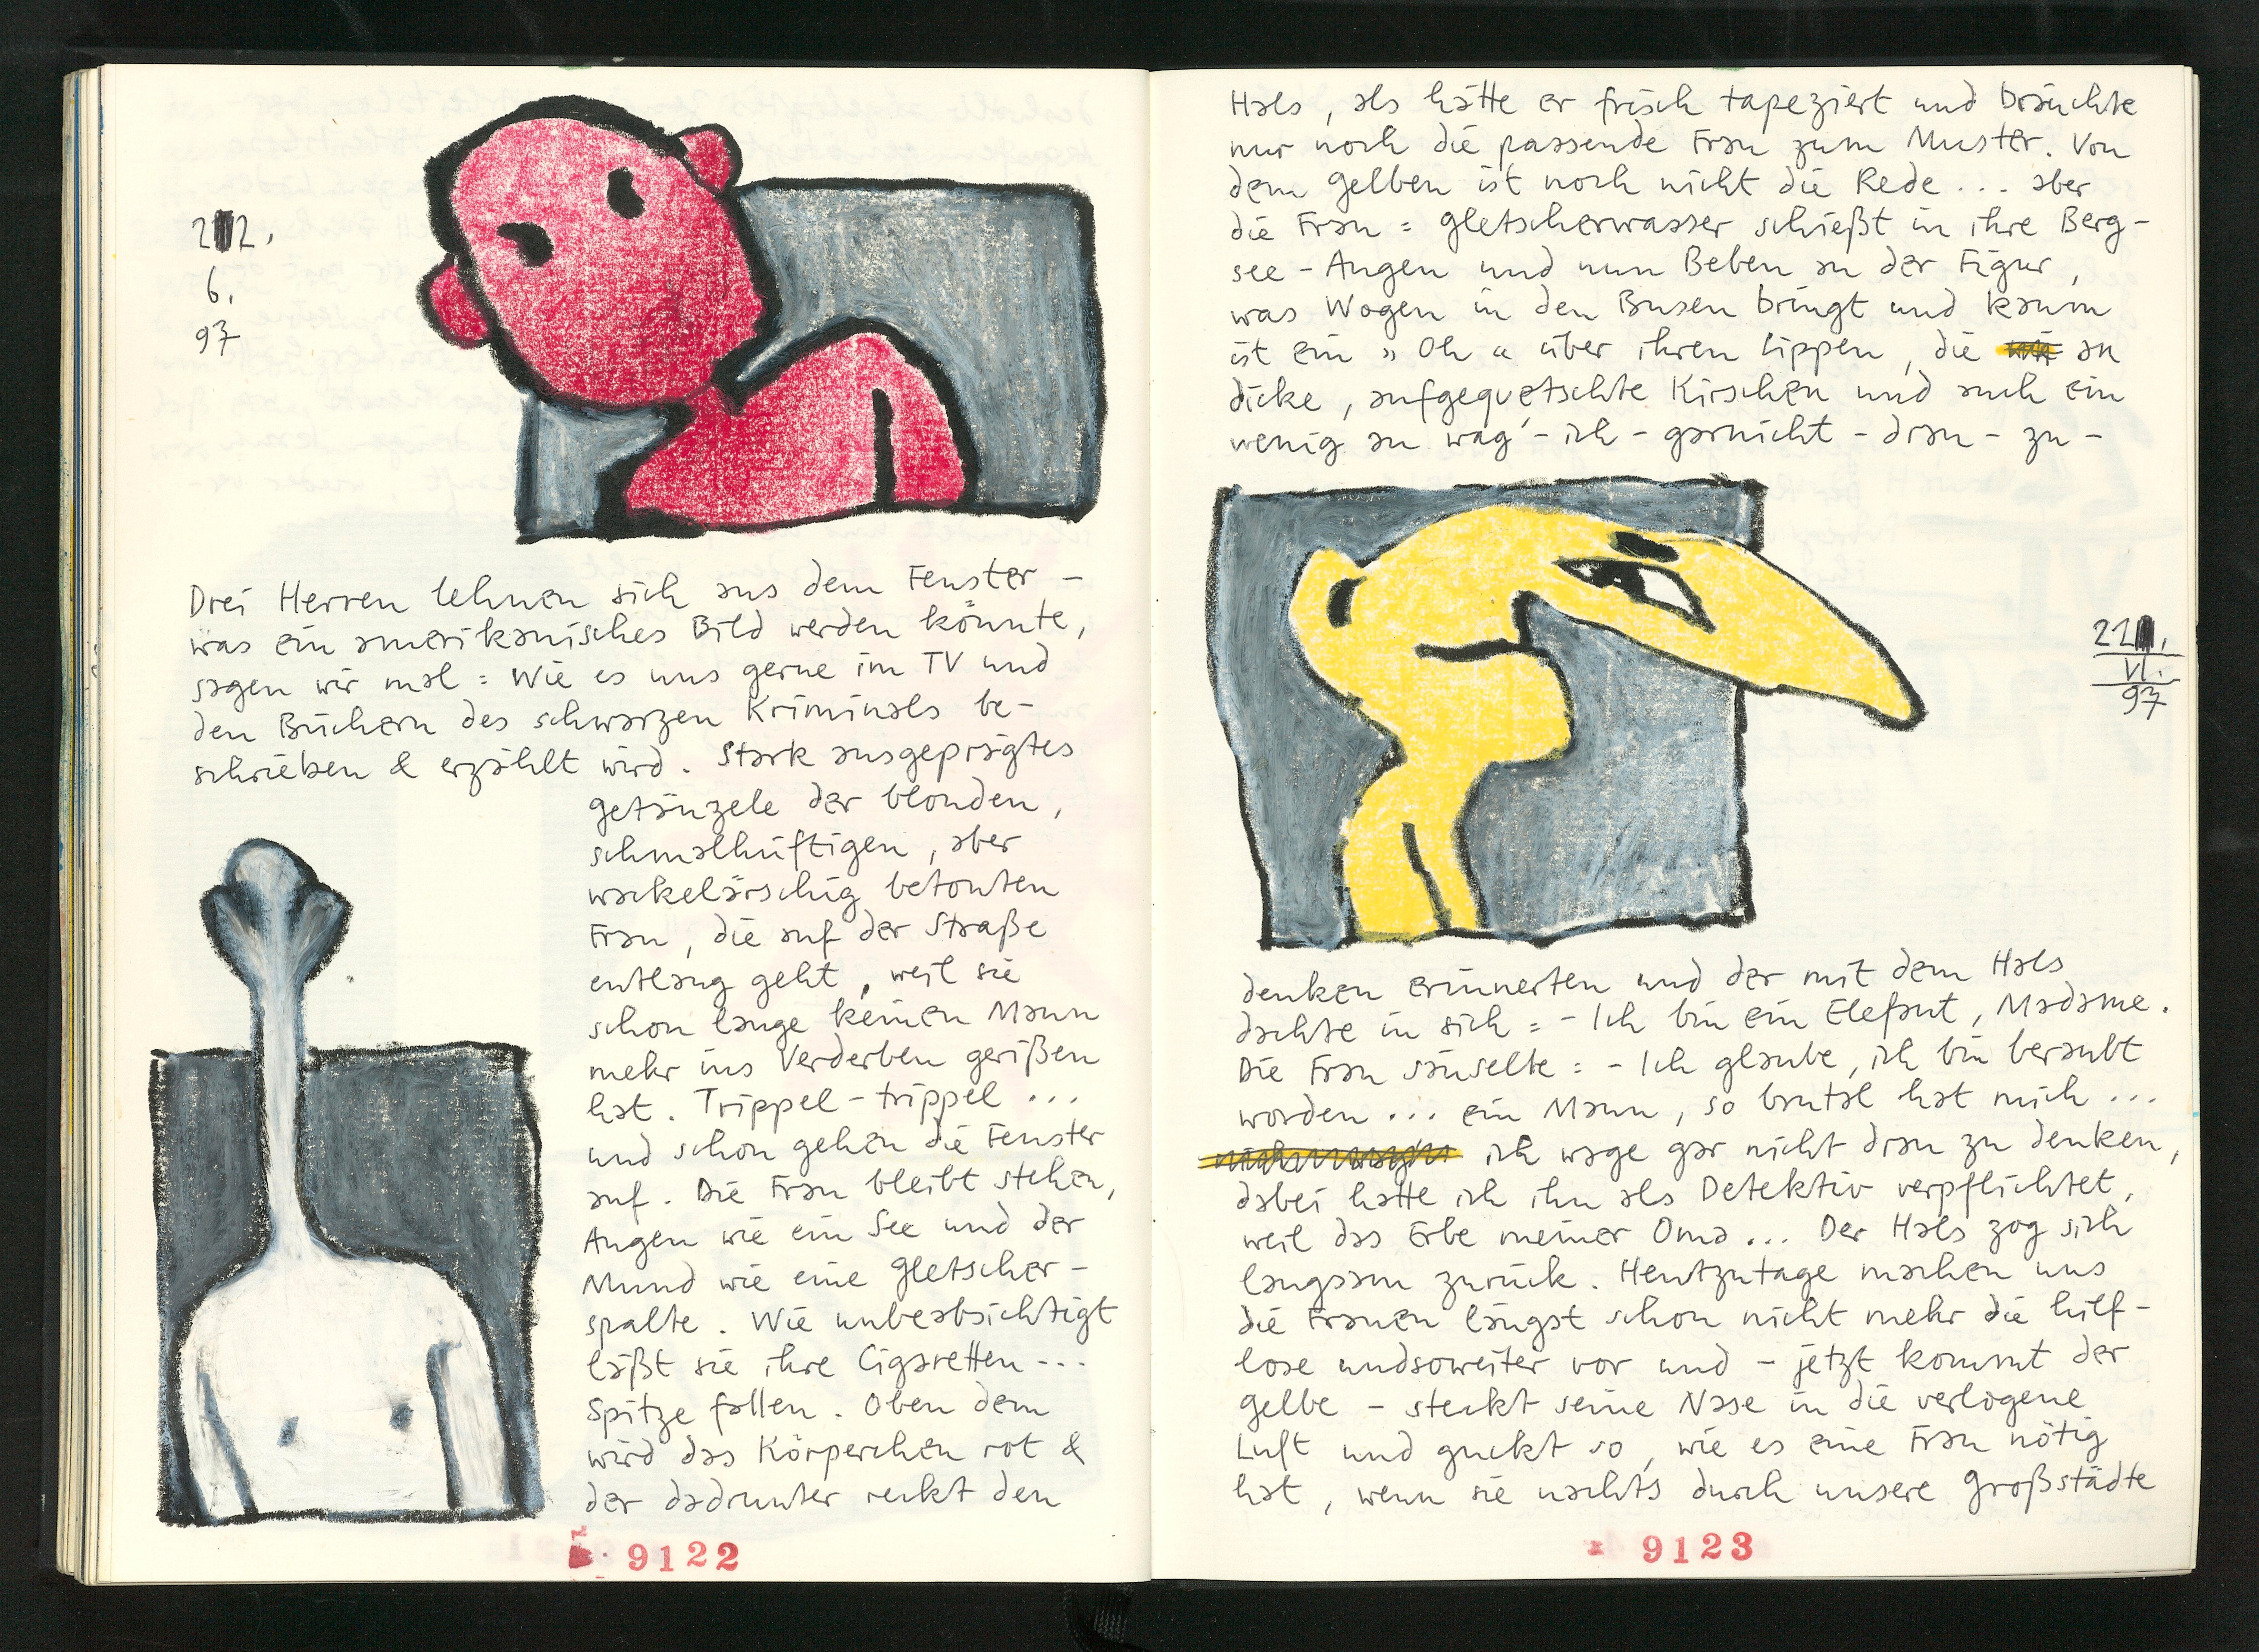 2 2.
6.
97
Drei Herren lehnen sich aus dem Fenster –
was ein amerikanisches Bild werden könnte,
sagen wir mal : Wie es uns gerne im TV und
den Büchern des schwarzen Kriminals be-
schrieben & erzählt wird. Stark ausgeprägtes
getänzele der blonden,
schmalhüftigen, aber
wackelärschig betonten
Frau, die auf der Straße
entlang geht, weil sie
schon lange keinen Mann
mehr ins Verderben gerißen
hat. Trippel-trippel ...
und schon gehen die Fenster
auf. Die Frau bleibt stehen,
Augen wie ein See und der
Mund wie eine gletscher-
spalte. Wie unbeabsichtigt
läßt sie ihre Cigaretten---
Spitze fallen. Oben dem
wird das Körperchen rot &
der dadrunter reckt den
9122
Hals, als hätte er frisch tapeziert und bräuchte
nur noch die passende Frau zum Muster. Von
dem gelben ist noch nicht die Rede ... aber
die Frau : gletscherwasser schießt in ihre Berg-
see-Augen und nun Beben an der Figur,
was Wogen in den Busen bringt und kaum
ist ein » Oh « über ihren Lippen, die an
dicke, aufgequetschte Kirschen und auch ein
wenig an wag'-ich-garnicht-dran-zu-
22.
VI.
97
denken erinnerten und der mit dem Hals
dachte in sich : - Ich bin ein Elefant, Madame.
Die Frau säuselte : - Ich glaube, ich bin beraubt
worden ... ein Mann, so brutal hat mich ...
ich wage gar nicht dran zu denken,
dabei hatte ich ihn als Detektiv verpflichtet,
weil das Erbe meiner Oma ... Der Hals zog sich
langsam zurück. Heutzutage machen uns
die Frauen längst schon nicht mehr die hilf-
lose undsoweiter vor und – jetzt kommt der
gelbe – steckt seine Nase in die verlogene
Luft und guckt so, wie es eine Frau nötig
hat, wenn sie nachts durch unsere großstädte
9123